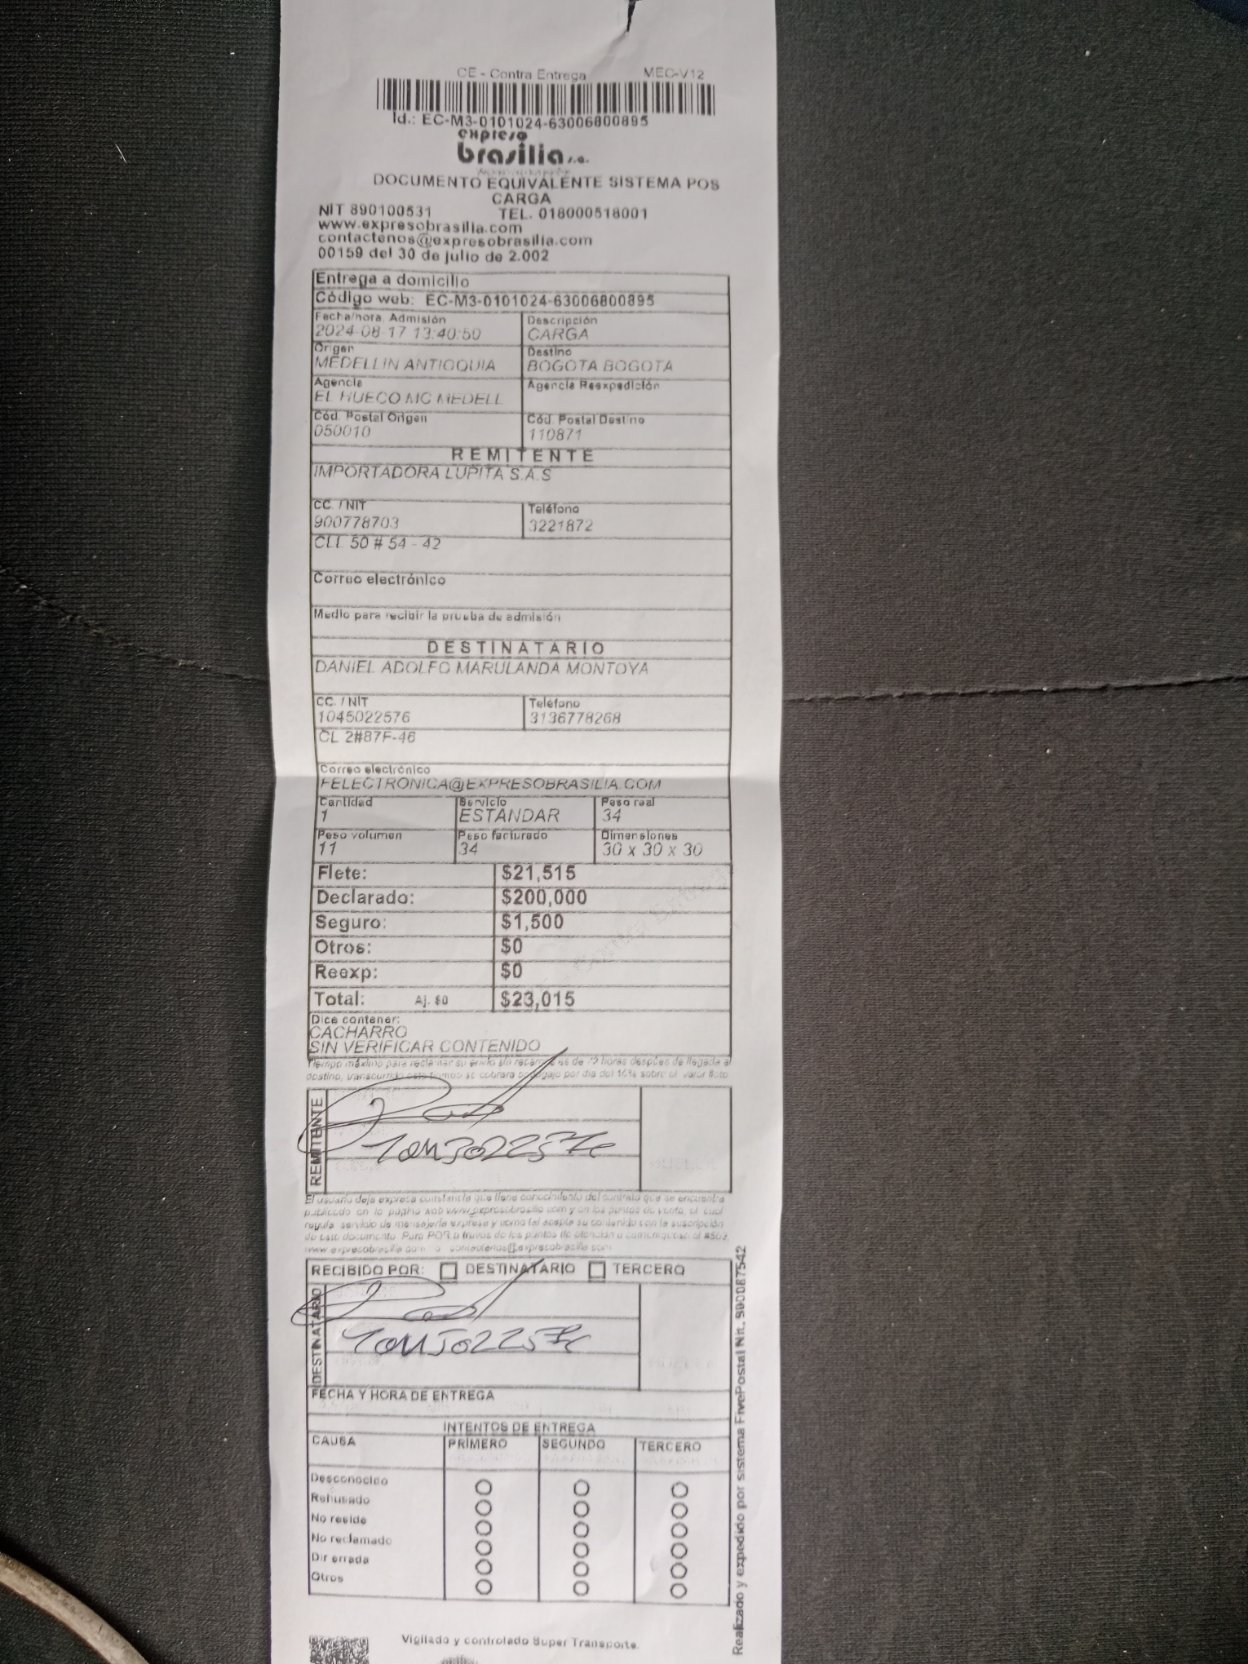 CE - Contra Entrega MEC-V12
Id.: EC-M3-0101024-63006800895
expreso
brasilia s.a.
DOCUMENTO EQUIVALENTE SISTEMA POS
CARGA
NIT 890100531 TEL. 018000518001
www.expresobrasilia.com
contactenos@expresobrasilia.com
00159 del 30 de julio de 2.002
Entrega a domicilio
Código web: EC-M3-0101024-63006800895
Fecha/hora Admisión Descripción
2024-08-17 13:40:50 CARGA
Origen Destino
MEDELLIN ANTIOQUIA BOGOTA BOGOTA
Agencia Agencia Reexpedición
EL HUECO MC MEDELL
Cód. Postal Origen Cód. Postal Destino
050010 110871
REMITENTE
IMPORTADORA LUPITA S.A.S
CC. / NIT Teléfono
900778703 3221872
CLL 50 # 54 - 42
Correo electrónico
Medio para recibir la prueba de admisión
DESTINATARIO
DANIEL ADOLFO MARULANDA MONTOYA
CC. / NIT Teléfono
1045022576 3136778268
CL 2#87F-46
Correo electrónico
FELECTRONICA@EXPRESOBRASILIA.COM
Cantidad Servicio Peso real
1 ESTANDAR 34
Peso volumen Peso facturado Dimensiones
11 34 30 x 30 x 30
Flete: $21,515
Declarado: $200,000
Seguro: $1,500
Otros: $0
Reexp: $0
Total: Aj. $0 $23,015
Dice contener:
CACHARRO
SIN VERIFICAR CONTENIDO
Tiempo máximo para reclamar su envío sin recargo es de 72 horas después de llegada a
destino, transcurrido este tiempo se cobrará bodegaje por día del 10% sobre el valor flete
REMITENTE
1045022576
El usuario deja expresa constancia que tiene conocimiento del contrato que se encuentra
publicado en la página web www.expresobrasilia.com y en los puntos de venta, el cual
regula servicio de mensajería expresa y acepta su contenido con la suscripción
de este documento. Para PQR a través de los puntos de atención o comuníquese al #502,
www.expresobrasilia.com o contactenos@expresobrasilia.com
RECIBIDO POR: DESTINATARIO TERCERO
DESTINATARIO
1045022576
FECHA Y HORA DE ENTREGA
INTENTOS DE ENTREGA
CAUSA PRIMERO SEGUNDO TERCERO
Desconocido
Rehusado
No reside
No reclamado
Dir errada
Otros
Realizado y expedido por sistema FivePostal Nit. 900087542
Vigilado y controlado Super Transporte.